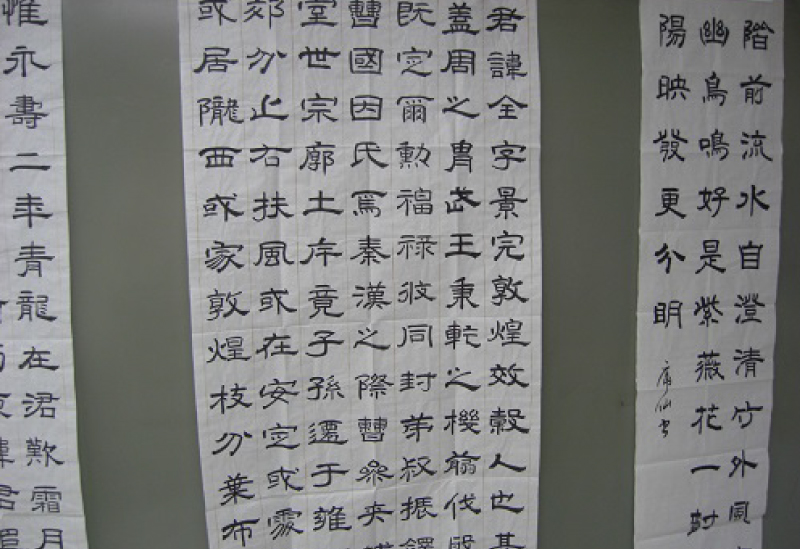 階前流水自澄清竹外風
幽鳥鳴好是紫薇花一封
陽映發更分明
君諱全字景完敦煌效穀人也其
蓋周之胄武王秉乾之機翦伐殷
既定爾勳福祿攸同封弟叔振鐸
曹國因氏焉秦漢之際曹參夾
室世宗廓土斥竟子孫遷于雍
郊分止右扶風或在安定或處
或居隴西或家敦煌枝分葉布
惟永壽二年青龍在涒歎霜月